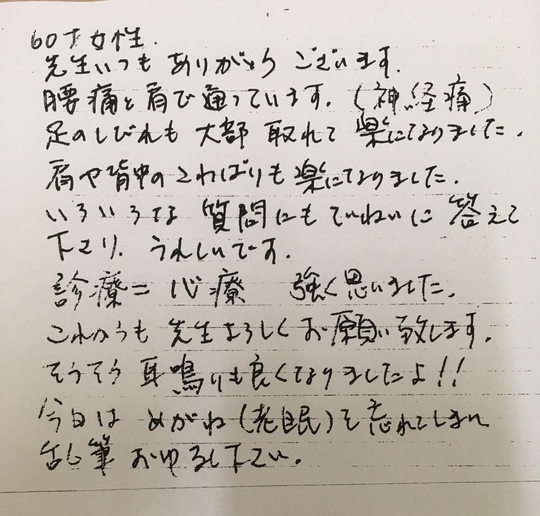 60才女性.
先生いつもありがとうございます.
腰痛と肩で通っています.(神経痛)
足のしびれも大部取れて楽になりました.
肩や背中のこわばりも楽になりました.
いろいろな質問にもていねいに答えて
下さり.うれしいです.
診療=心療 強く思いました.
これからも先生よろしくお願い致します.
そうそう耳鳴りも良くなりましたよ!!
今日はめがね(老眼)を忘れてしまい
乱筆おゆるし下さい.